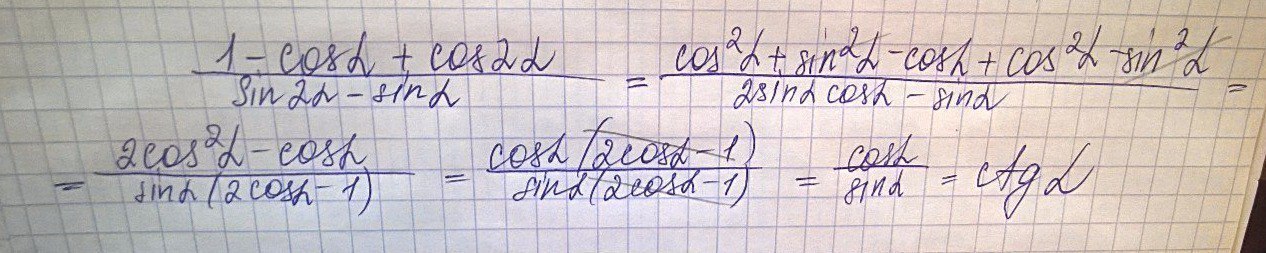 (1 - cosα + cos2α)/(sin2α - sinα) = (cos²α + sin²α - cosα + cos²α - sin²α)/(2sinα cosα - sinα) =
= (2cos²α - cosα)/(sinα(2cosα - 1)) = (cosα(2cosα - 1))/(sinα(2cosα - 1)) = cosα/sinα = ctgα